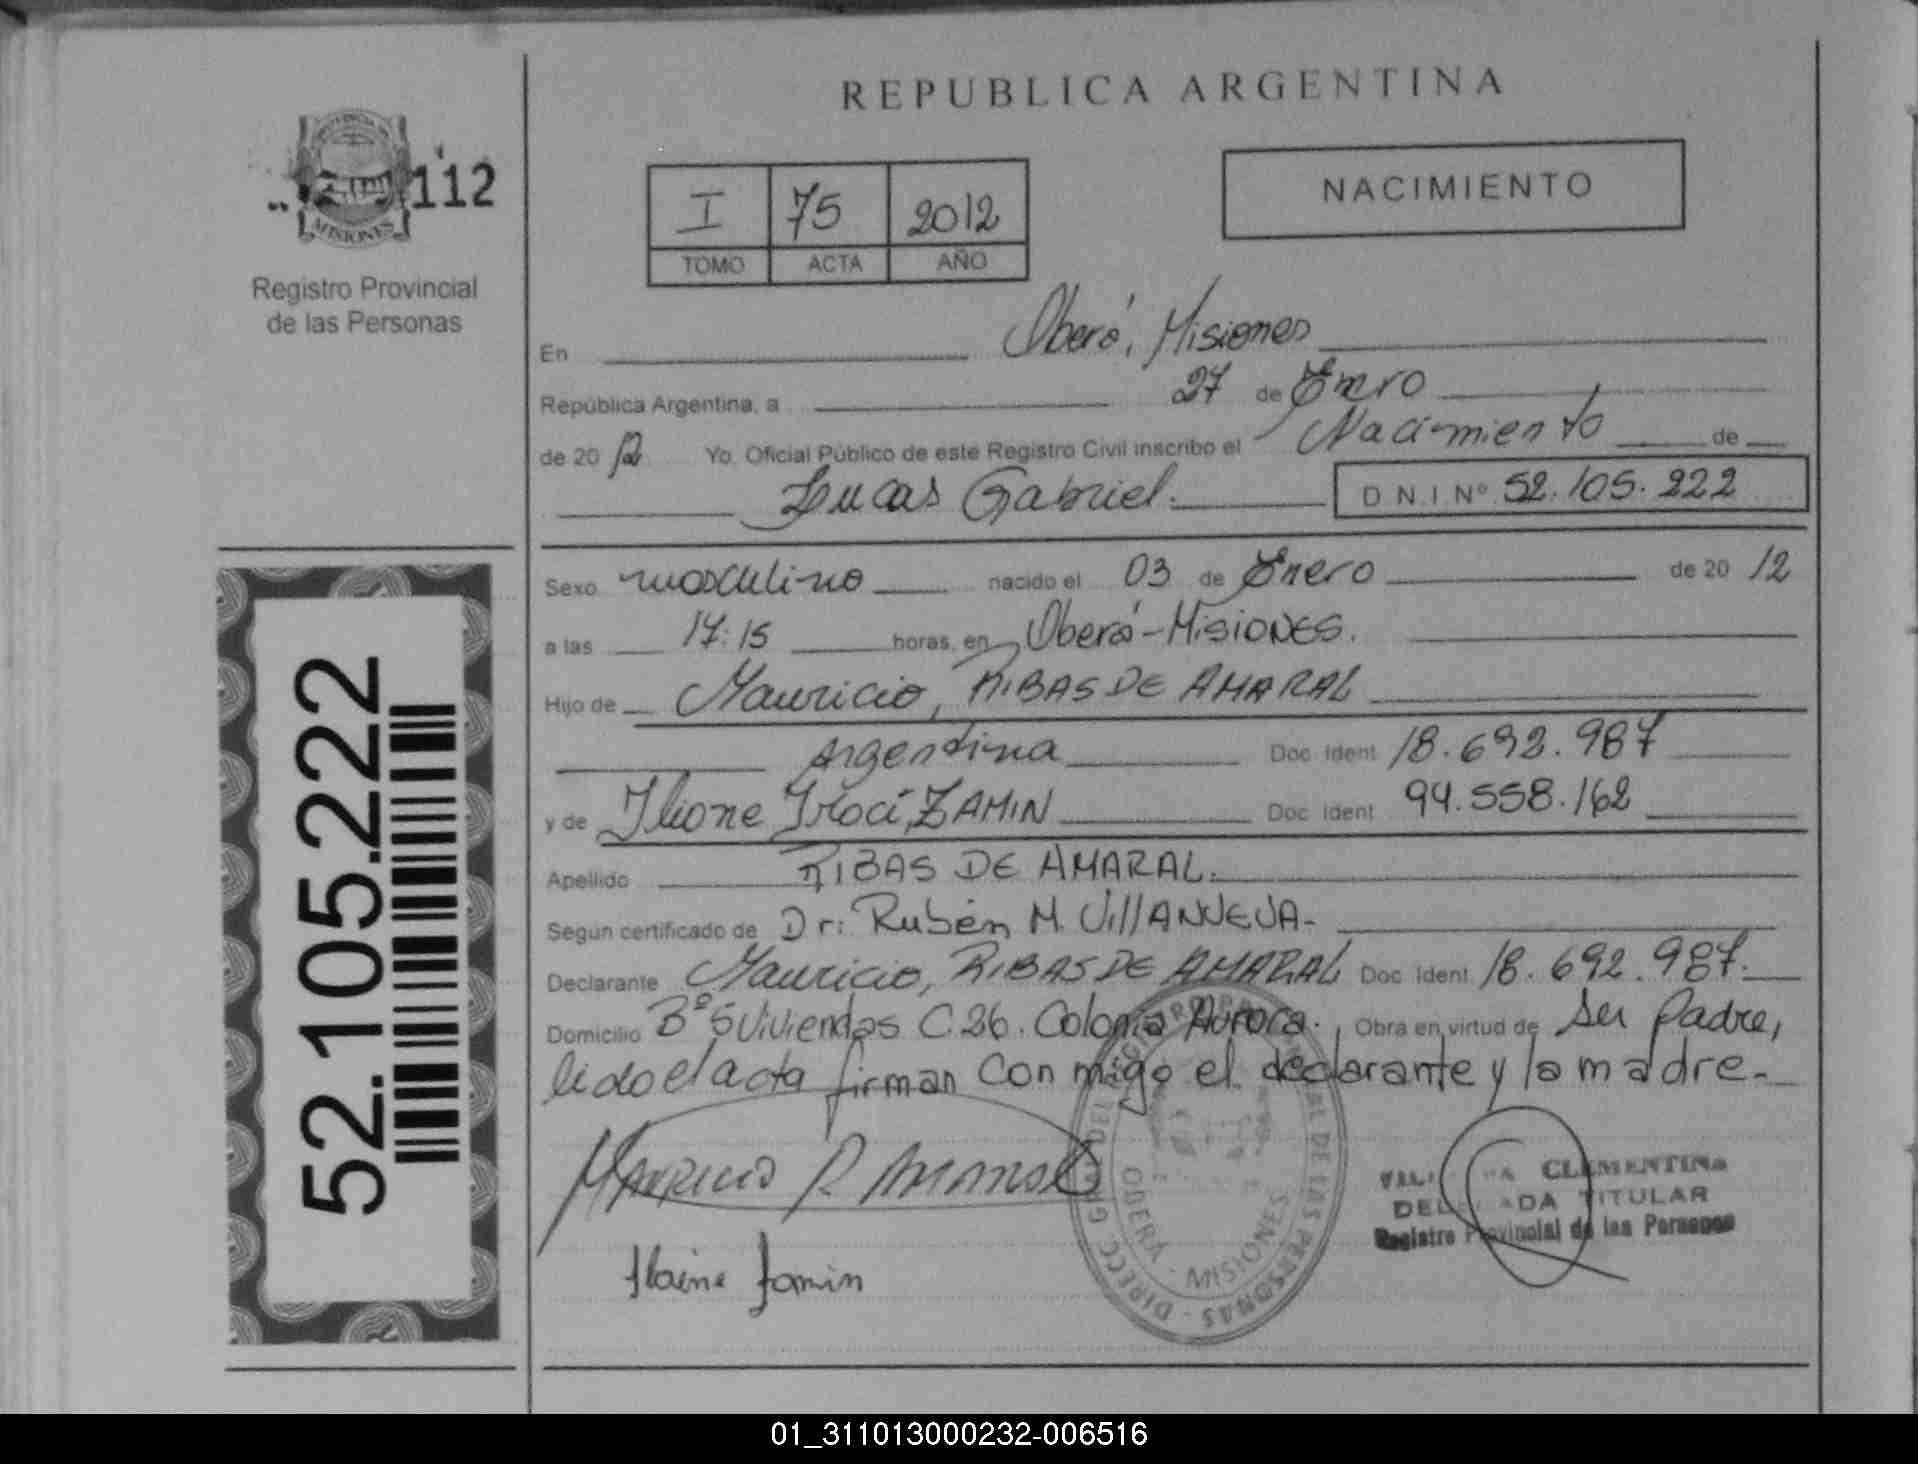 REPUBLICA ARGENTINA
112
MISIONES
Registro Provincial
de las Personas
I 75 2012
TOMO ACTA AÑO
NACIMIENTO
En Oberá, Misiones
República Argentina, a 27 de Enero
de 2012 Yo, Oficial Público de este Registro Civil inscribo el Nacimiento de
Lucas Gabriel. D N.I Nº 52.105.222
Sexo masculino nacido el 03 de Enero de 2012
a las 17:15 horas, en Oberá-Misiones.
Hijo de Mauricio, RIBAS DE AMARAL
Argentina Doc Ident 18.692.987
y de ZAMIN Doc Ident 94.558.162
Apellido RIBAS DE AMARAL.
Según certificado de Dr: Rubén M. VillANUEVA-
Declarante Mauricio, RIBAS DE AMARAL Doc Ident 18.692.987.
Domicilio Bº 5 viviendas C.26. Colonia Aurora. Obra en virtud de Su Padre,
leido el acta firman con migo el declarante y la madre.-
52.105.222
OBERÁ - MISIONES
CLEMENTINA
TITULAR
Registro Provincial de las Personas
01_311013000232-006516